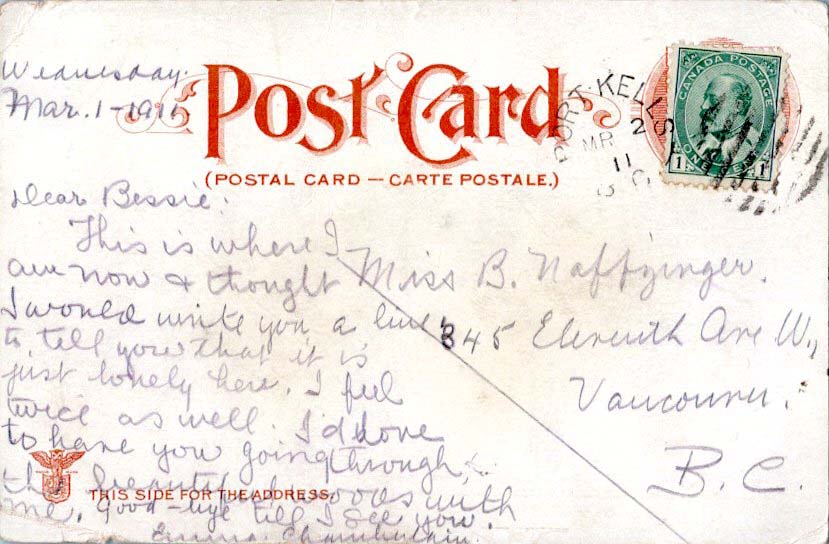 Wednesday.
Mar. 1-1911
POST CARD
(POSTAL CARD — CARTE POSTALE.)
PORT KELLS
MR 2
11
B C
CANADA POSTAGE
ONE CENT
1 1
Dear Bessie:
This is where I
am now & thought
I would write you a line
to tell you that it is
just lonely here. I feel
twice as well. I'd love
to have you going through
the beautiful woods with
me. Good-bye till I see you.
Emma Chamberlain.
Miss B. Naffzinger.
345 Eleventh Ave W.,
Vancouver,
B.C.
THIS SIDE FOR THE ADDRESS.